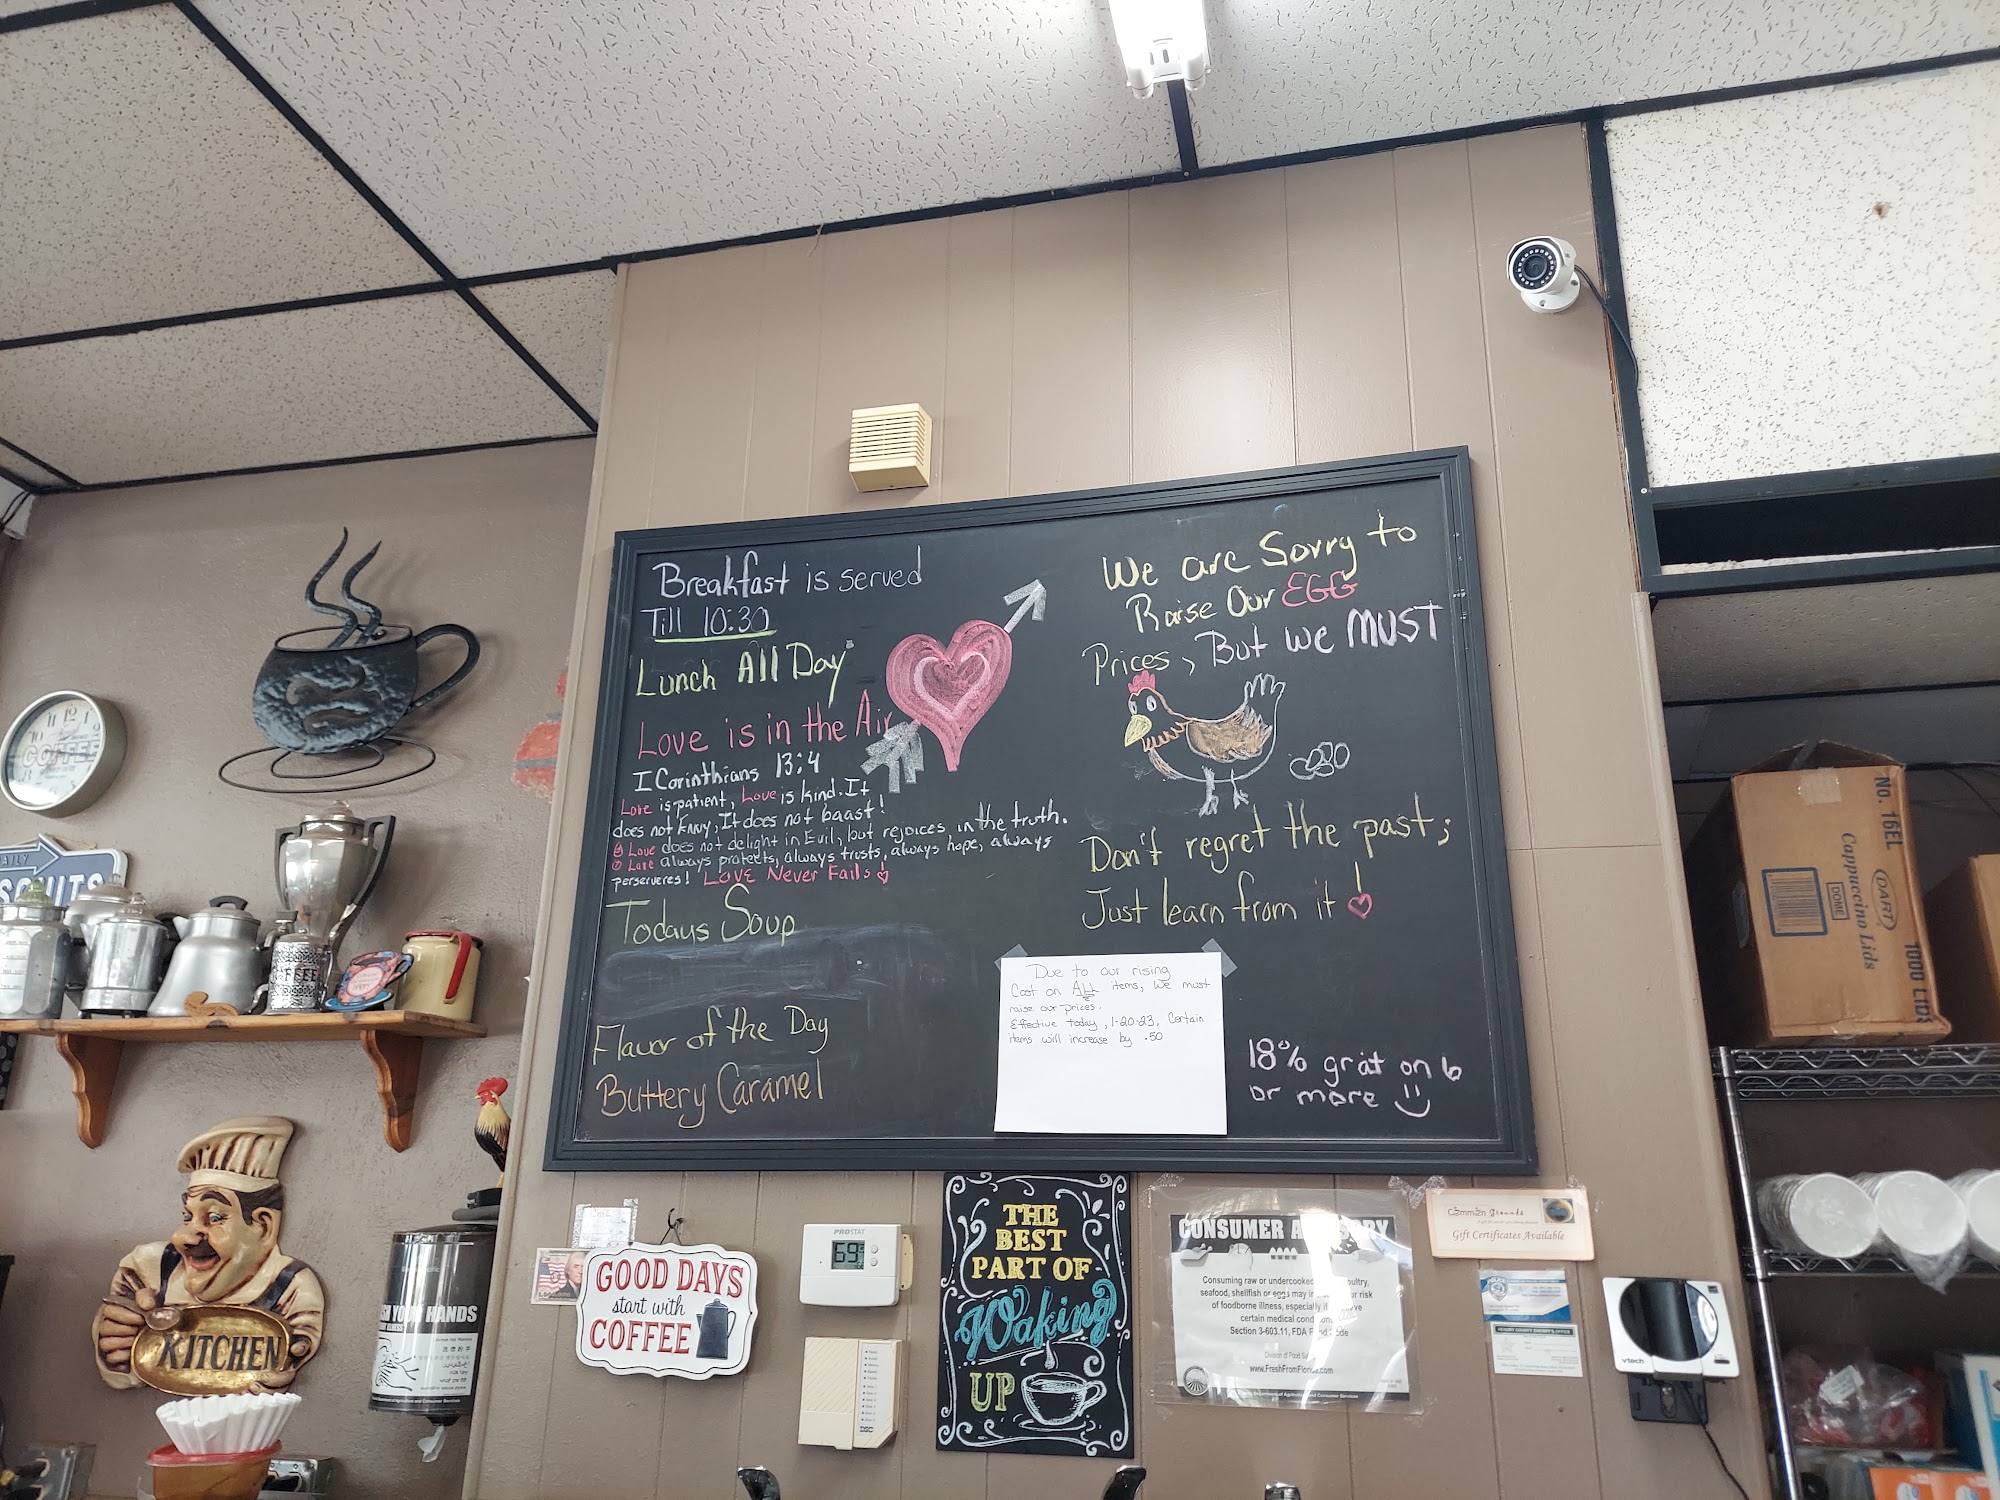 Breakfast is served
Till 10:30
Lunch All Day
Love is in the Air
I Corinthians 13:4
Love is patient, Love is kind. It
does not Envy, It does not boast!
Love does not delight in Evil, but rejoices in the truth.
Love always protects, always trusts, always hope, always
perserveres! LOVE Never Fails
Todays Soup
Flavor of the Day
Buttery Caramel
We are Sorry to
Raise Our EGG
Prices, But we MUST
Don't regret the past;
Just learn from it!
Due to our rising
Cost on ALL items, we must
raise our prices.
Effective today, 1-20-23, Certain
items will increase by .50
18% grat on 6
or more
COFFEE
DAILY
SCOUTS
FFEE
KITCHEN
YOUR HANDS
GOOD DAYS
start with
COFFEE
PROSTAT
69
DSC
THE
BEST
PART OF
Waking
UP
CONSUMER
Consuming raw or undercooked
seafood, shellfish or eggs may
of foodborne illness, especially if
certain medical
Section 3-603.11, FDA
Division of Food
www.FreshFromFlorida.com
Common Grounds
Gift Certificates Available
vtech
No. 16EL
DART
Cappuccino Lids
DOME
1000